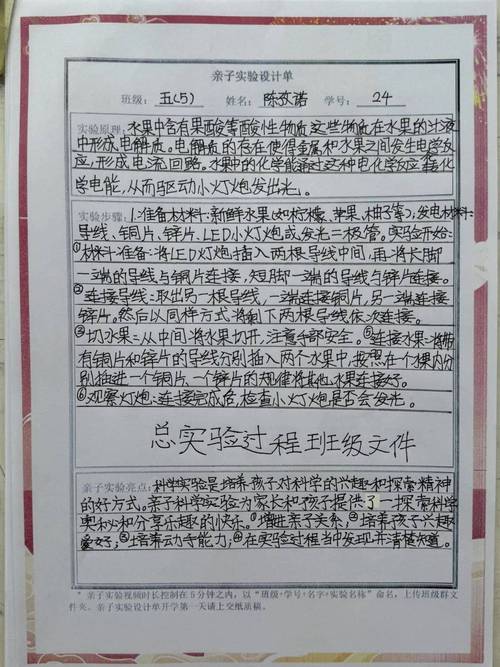 亲子实验设计单
班级：五(5) 姓名：陈苡诺 学号：24
实验原理：水果中含有果酸等酸性物质这些物质在水果的汁液
中形成电解质。电解质的存在使得金属和水果之间发生电学反
应，形成电流回路。水果中的化学能通过这种电化学反应转化
学电能，从而驱动小灯炮发出光。
实验步骤：1.准备材料：新鲜水果(如柠檬、苹果、柚子等)，发电材料：
导线、铜片、锌片、LED小灯炮或发光二极管。实验开始：
①材料准备：将LED灯炮插入两根导线中间，再将长脚
一端的导线与铜片连接，短脚一端的导线与锌片连接。
②连接导线：取出另一根导线，一端连接铜片，另一端连接
锌片。然后以同样方式将剩下两根导线依次连接。
③切水果：从中间将水果切开，注意手部安全。⑤连接水果：将带
有铜片和锌片的导线分别插入两个水果中，按照在个果内分
别插进一个铜片、一个锌片的规律将其他水果连接好。
⑥观察灯炮：连接完成后，检查小灯炮是否会发光。
总实验过程班级文件
亲子实验亮点：科学实验是培养孩子对科学的兴趣和探索精神
的好方式。亲子科学实验为家长和孩子提供了一探索科学
奥妙和分享乐趣的快乐。①增进亲子关系，②培养孩子兴趣
爱好；③培养动手能力；④在实验过程当中发现并清楚知道。
*亲子实验视频时长控制在5分钟之内，以“班级+学号+名字+实验名称”命名，上传班级群文
件夹。亲子实验设计单开学第一天请上交纸质稿。